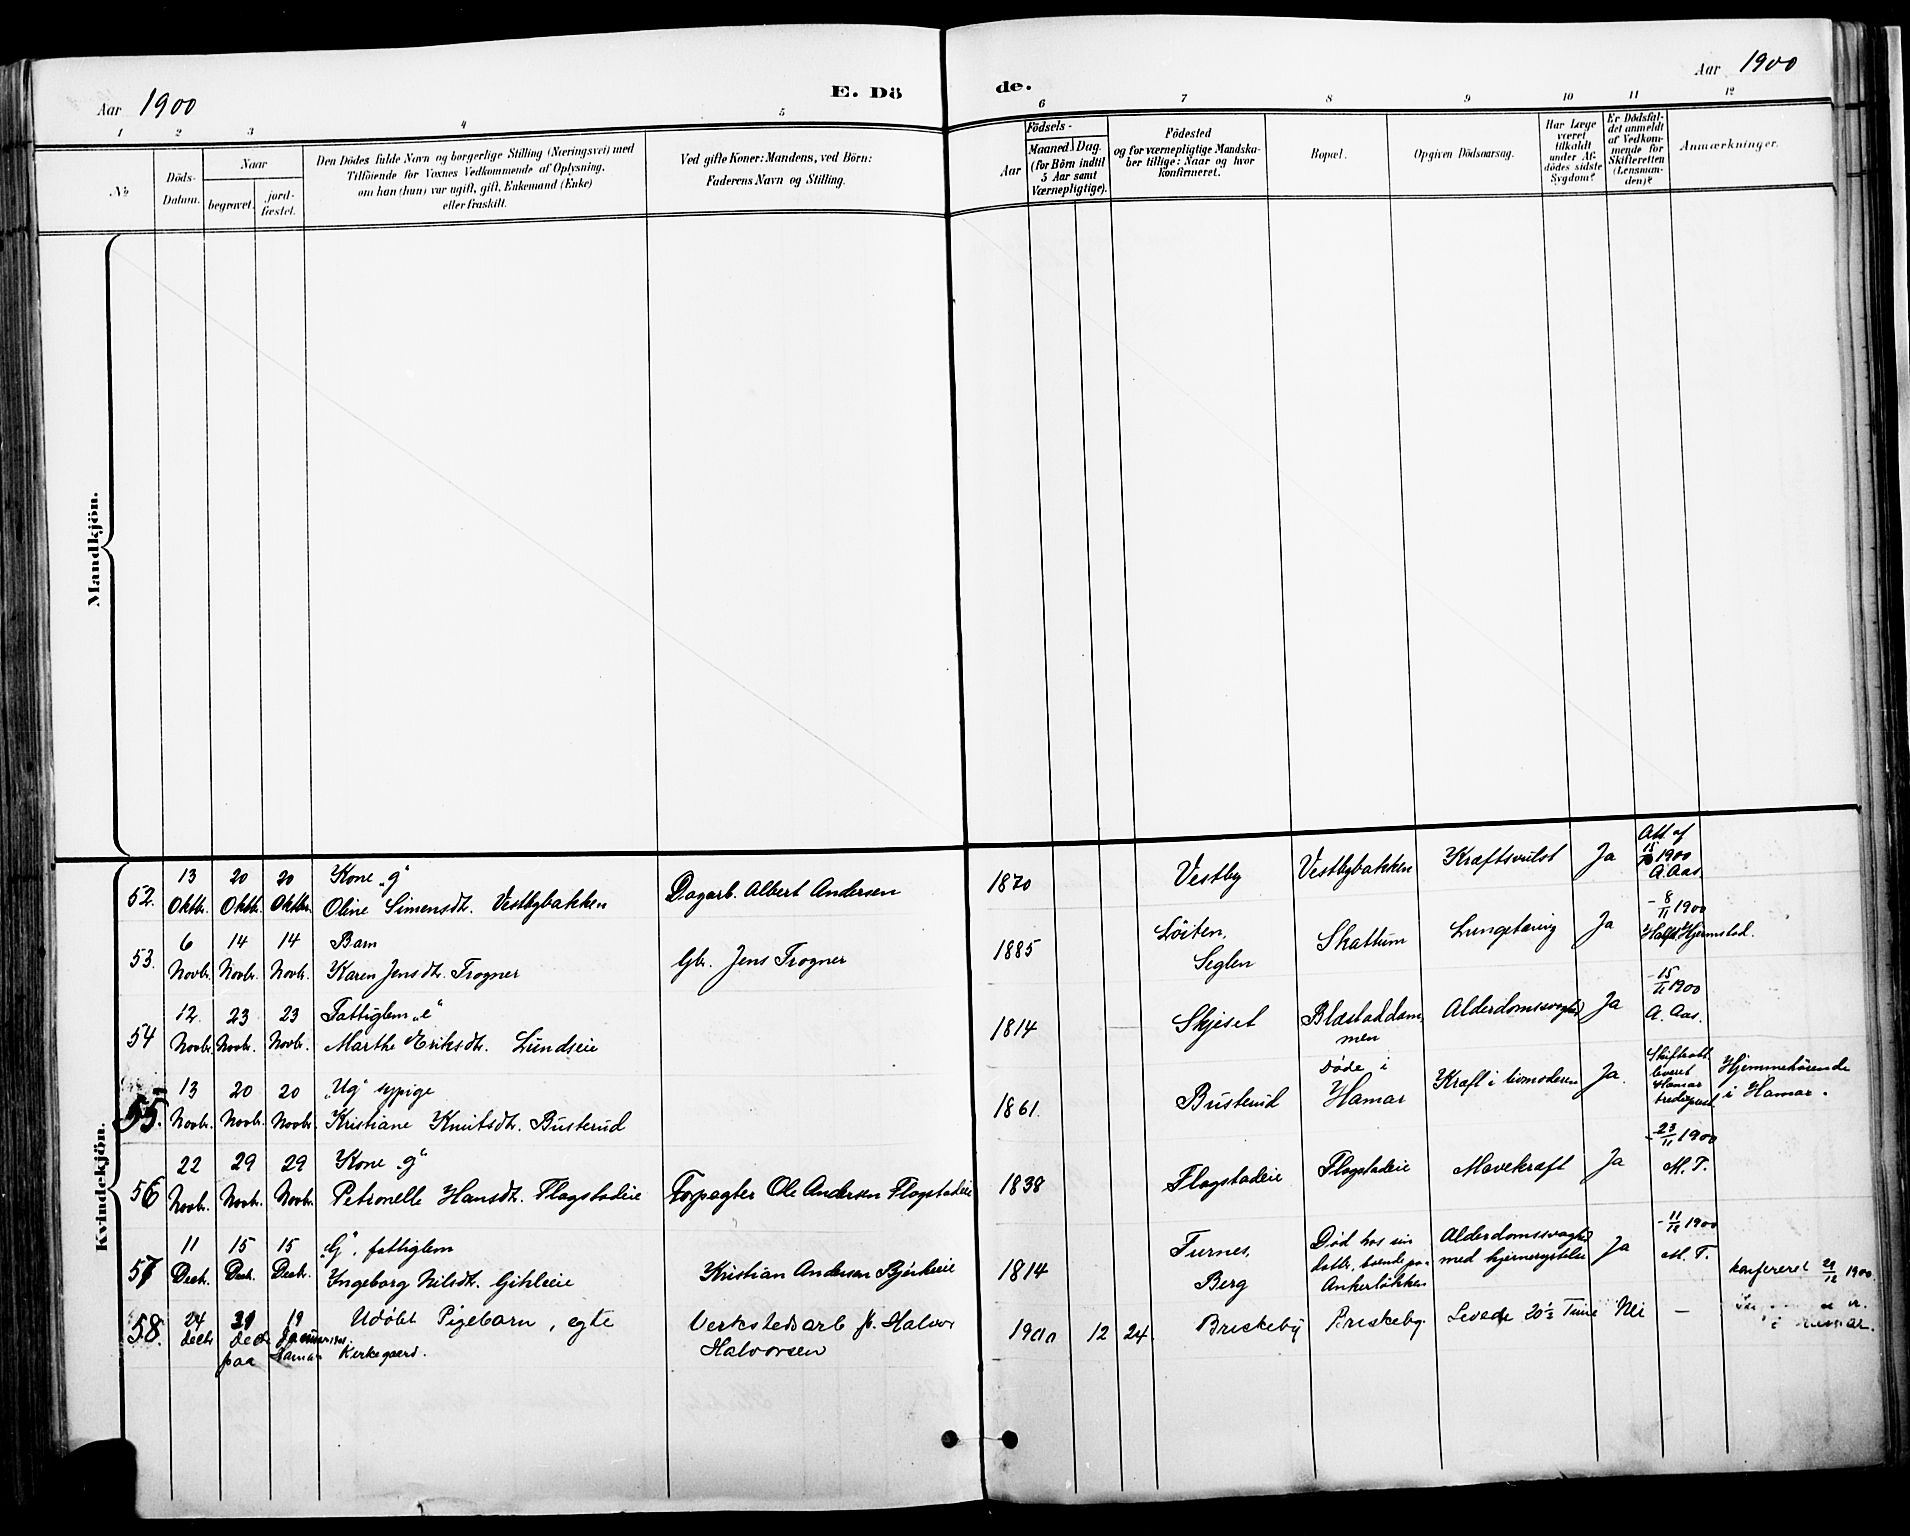 Aar 1900
E. Dö
de.
Aar 1900
1 2 3 4 5 6 7 8 9 10 11 12
No
Döds-
Datum.
Naar
begravet.
jord-
fæstet.
Den Dödes fulde Navn og borgerlige Stilling (Næringsvei) med
Tilföiende for Voxnes Vedkommende af Oplysning,
om han (hun) var ugift, gift, Enkemand (Enke)
eller fraskilt.
Ved gifte Koner: Mandens, ved Börn:
Faderens Navn og Stilling.
Födsels-
Aar
Maaned Dag.
(for Börn indtil
5 Aar samt
Værnepligtige).
Födested
og for værnepligtige Mandska-
ber tillige: Naar og hvor
konfirmeret.
Bopæl.
Opgiven Dödsaarsag.
Har Læge
været
tilkaldt
under Af-
dödes sidste
Sygdom?
Er Dödsfal-
det anmeldt
af Vedkom-
mende for
Skifteretten
(Lensman-
den)?
Anmærkninger.
Mandkjön.
Kvindekjön.
52. 13 Oktbr. 20 Oktbr. 20 Oktbr.
Kone "g"
Oline Simensdt. Vestbybakken
Dagarb. Albert Andersen
1870 Vestby Vestbybakken Kræftsvulst Ja
Att. af
15/10 1900
A. Aas.
53. 6 Novbr. 14 Novbr. 14 Novbr.
Barn
Karen Jensdt. Trogner
Gbr. Jens Trogner
1885 Löiten,
Seglen
Skattum Lungetæring Ja
- 8/11 1900
Hjermstad.
54 12 Novbr. 23 Novbr. 23 Novbr.
Fattiglem "e"
Marthe Eriksdt. Lundseie
1814 Skjeset Blæstaddam-
men
Alderdomssvaghed Ja
- 15/11 1900
A. Aas.
55. 13 Novbr. 20 Novbr. 20 Novbr.
"Ug" sypige
Kristiane Knutsdt. Busterud
1861. Busterud Døde i
Hamar
Kræft i livmoderen Ja.
Hamar
Hjemmehörende
i Hamar.
56 22 Novbr. 29 Novbr. 29 Novbr.
Kone "g"
Petronelle Hansdt. Flagstadeie
Forpagter Ole Andersen Flagstadeie
1838 Flagstadeie Flagstadeie Mavekræft Ja
- 23/11 1900
M. T.
57 11 Decb. 15 Decb. 15 Decb.
"G", fattiglem
Ingeborg Nilsdt. Gihleeie
Kristian Andersen Bjerkeeie
1814 Furnes,
Berg
Död hos sin
datter, boende paa
Ankerlökken
Alderdomssvaghed
med hjernerystelse
Ja
- 11/12 1900
M. T.
Konfereret 29/12 1900.
58. 24 Decbr 31 Decbr 19 Januar
Udöbt Pigebarn, egte
paa Hamar Kirkegaard.
Verkstedsarb Halvor
Halvorsen
1900 12 24. Briskeby Briskeby. Levede 20½ Time Nei —